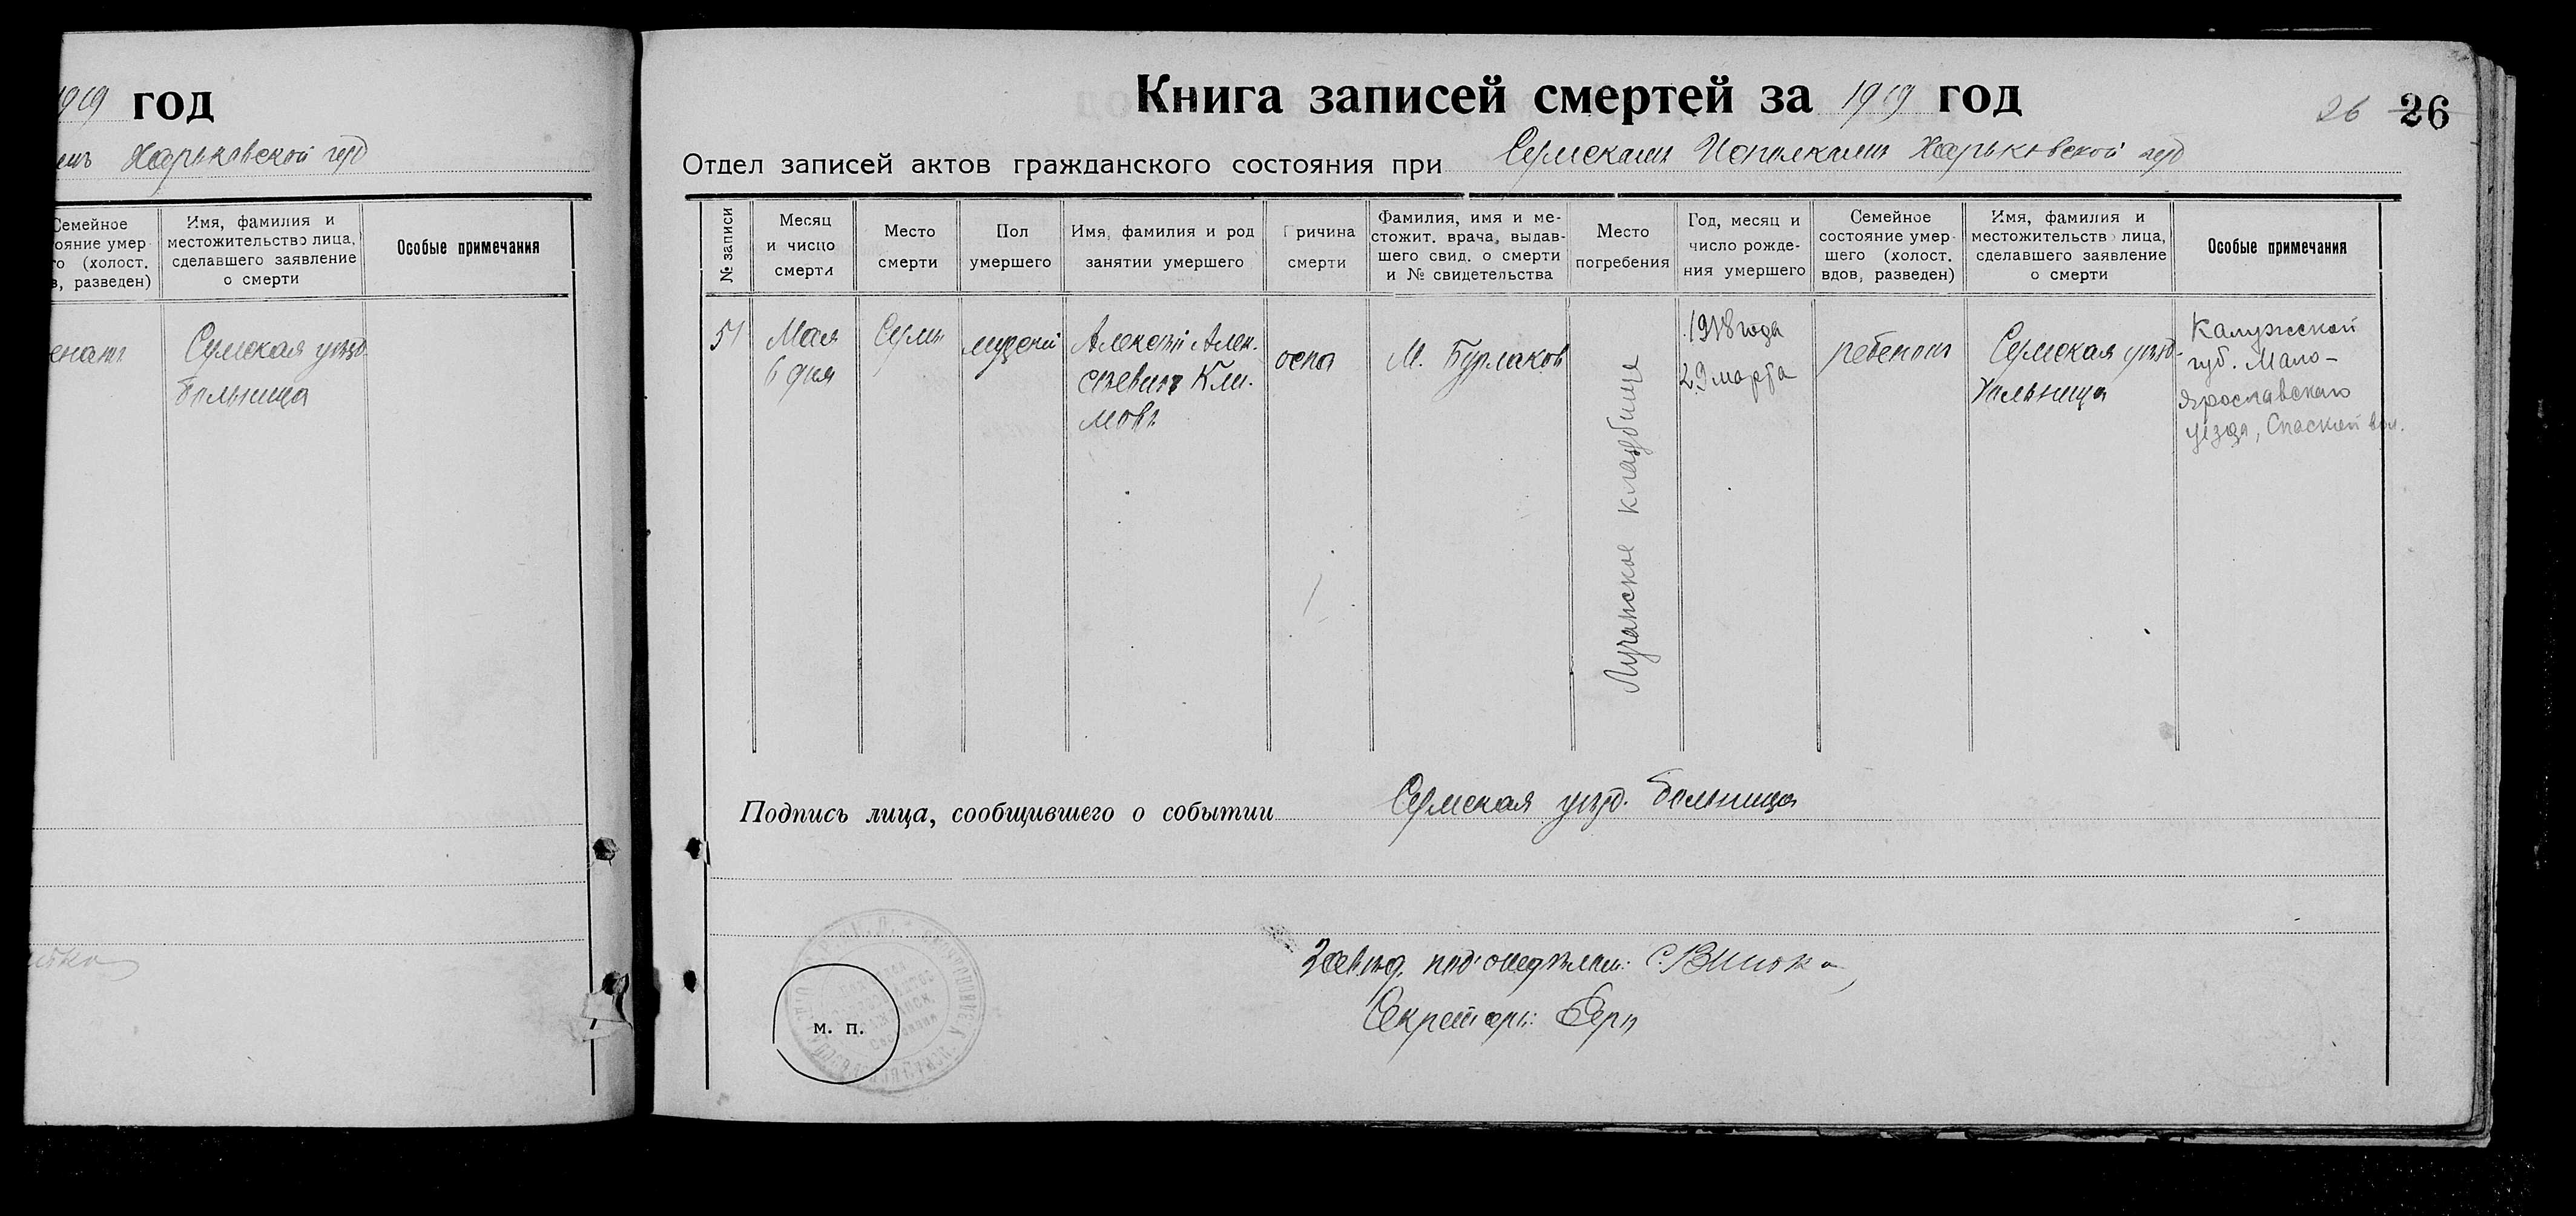 1919 год
Харьковской губ
Семейное
ояние умер-
го (холост.
в, разведен)
Имя, фамилия и
местожительство лица,
сделавшего заявление
о смерти
Особые примечания
Сумская уѣзд.
больница
Книга записей смертей за 1919 год
26 26
Отдел записей актов гражданского состояния при Сумском Исполкоми Харьковской губ
№ записи
Месяц
и число
смерти
Место
смерти
Пол
умершего
Имя, фамилия и род
занятии умершего
Причина
смерти
Фамилия, имя и ме-
стожит. врача, выдав-
шего свид. о смерти
и № свидетельства
Место
погребения
Год, месяц и
число рожде-
ния умершего
Семейное
состояние умер-
шего (холост.
вдов, разведен)
Имя, фамилия и
местожительство лица,
сделавшего заявление
о смерти
Особые примечания
51
Мая
6 дня
Сумы
мужской
Алексѣй Алек-
сѣевичъ Кли-
мовъ
оспа
М. Бурлаков
Лучанское кладбище
1918 года
29 марта
ребенокъ
Сумская уѣзд.
больница
Калужской
губ. Мало-
Ярославскаго
уѣзда, Спаской вол.
Подпись лица, сообщившего о событии Сумская уѣзд. больница
м. п.
Завѣд. подотдѣлом:
Секретарь: